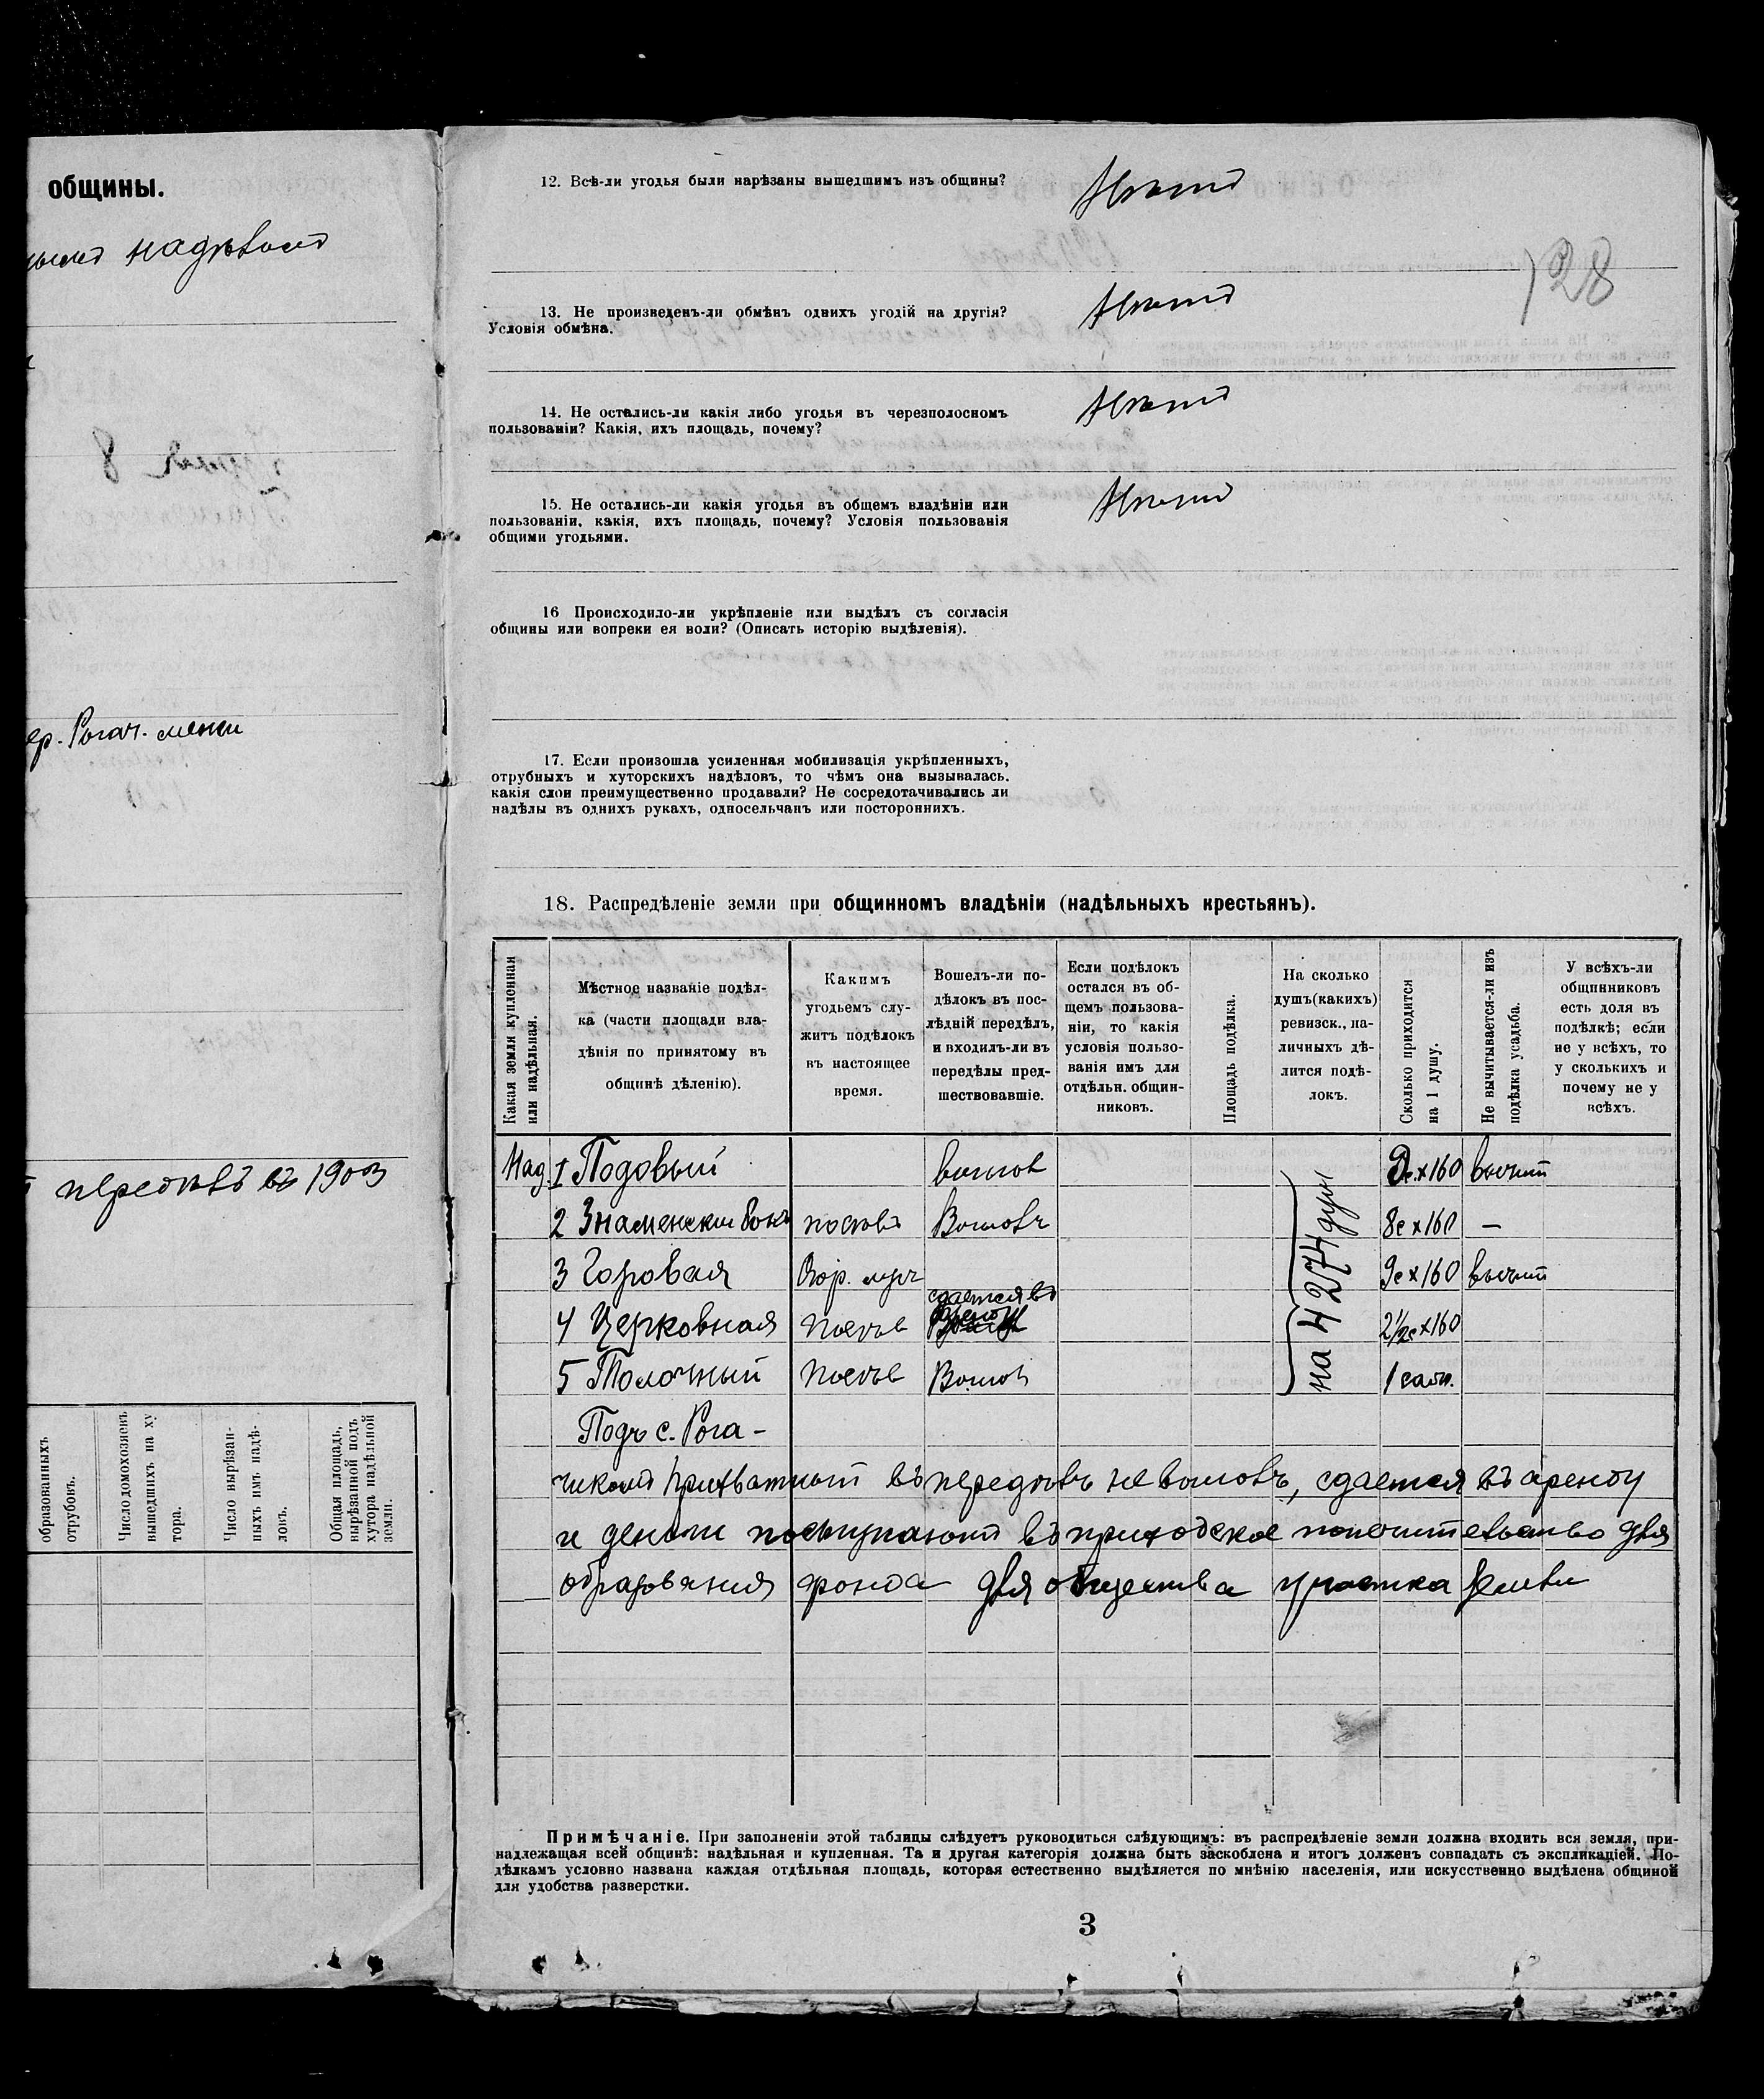 общины.
надѣломъ
ер. Рогач. межи
передѣлъ въ 1903
образованныхъ отрубовъ.
Число домохозяевъ вышедшихъ на хутора.
Число вырѣзанныхъ имъ надѣловъ.
Общая площадь, вырѣзанной подъ хутора надѣльной земли.
128
12. Всѣ-ли угодья были нарѣзаны вышедшимъ изъ общины?
Нѣтъ
13. Не произведенъ-ли обмѣнъ однихъ угодій на другія?
Условія обмѣна.
Нѣтъ
14. Не остались-ли какія либо угодья въ черезполосномъ
пользованіи? Какія, ихъ площадь, почему?
Нѣтъ
15. Не остались-ли какія угодья въ общемъ владѣніи или
пользованіи, какія, ихъ площадь, почему? Условія пользованія
общими угодьями.
Нѣтъ
16 Происходило-ли укрѣпленіе или выдѣлъ съ согласія
общины или вопреки ея воли? (Описать исторію выдѣленія).
17. Если произошла усиленная мобилизація укрѣпленныхъ,
отрубныхъ и хуторскихъ надѣловъ, то чѣмъ она вызывалась.
какія слои преимущественно продавали? Не сосредотачивались ли
надѣлы въ однихъ рукахъ, односельчанъ или постороннихъ.
18. Распредѣленіе земли при общинномъ владѣніи (надѣльныхъ крестьянъ).
Какая земля купленная
или надѣльная.
Мѣстное названіе подѣл-
ка (части площади вла-
дѣнія по принятому въ
общинѣ дѣленію).
Какимъ
угодьемъ слу-
житъ подѣлокъ
въ настоящее
время.
Вошелъ-ли по-
дѣлокъ въ пос-
лѣдній передѣлъ,
и входилъ-ли въ
передѣлы пред-
шествовавшіе.
Если подѣлокъ
остался въ об-
щемъ пользова-
ніи, то какія
условія пользо-
ванія имъ для
отдѣльн. общин-
никовъ.
Площадь подѣлка.
На сколько
душъ(какихъ)
ревизск., на-
личныхъ дѣ-
лится подѣ-
локъ.
Сколько приходится
на 1 душу.
Не вычитывается-ли изъ
подѣлка усадьба.
У всѣхъ-ли
общпнниковъ
есть доля въ
подѣлкѣ; если
не у всѣхъ, то
у сколькихъ и
почему не у
всѣхъ.
Над. 1 Подовый вошов х160 вычит
2 Знаменски посѣвъ Вошовъ 8с х160 —
3 Горовая 9с х160 вычит
сдается въ
4 Церковная посѣв аренду 2½с х160
5 Толочный посѣв Вошов 1 саж.
на 4 274 душ
Подъ с. Рога-
чикомъ въ передѣлъ не вошовъ, сдается въ аренду
и деньги поступаютъ въ приходское попечительство для
образования фонда для общества участка земли
Примѣчаніе. При заполненіи этой таблицы слѣдуетъ руководиться слѣдующимъ: въ распредѣленіе земли должна входить вся земля, при-
надлежащая всей общинѣ: надѣльная и купленная. Та и другая категорія должна быть заскоблена и итогъ долженъ совпадать съ экспликаціей. По-
дѣлкамъ условно названа каждая отдѣльная площадь, которая естественно выдѣляется по мнѣнію населенія, или искусственно выдѣлена общиной
для удобства разверстки.
3